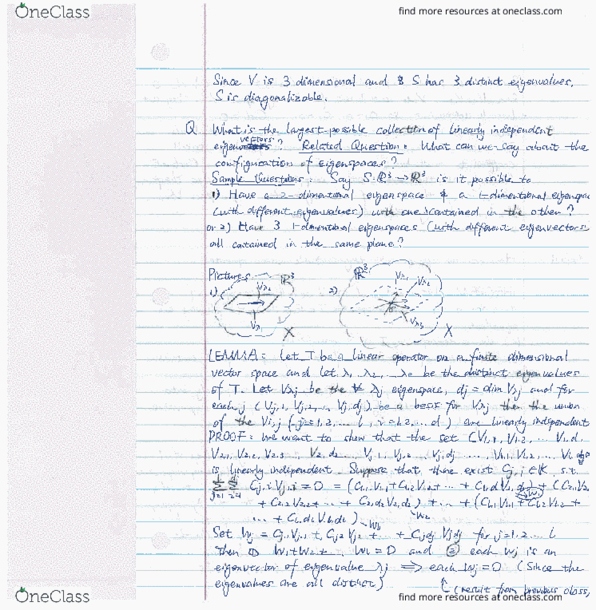 OneClass
find more resources at oneclass.com
Since V is 3 dimensional and S has 3 distinct eigenvalues,
S is diagonalizable.
Q What is the largest possible collection of linearly independent
eigenvectors? Related Question: What can we say about the
configuration of eigenspaces?
Sample Questions: Say S: ℝ³→ℝ³ is it possible to
1) Have a 2-dimentional eigenspace & a 1-dimentional eigenspace
(with different eigenvalues) with one contained in the other?
or 2) Have 3 1-dimentional eigenspaces (with different eigenvectors
all contained in the same plane?
Pictures
1) Vλ₂ ℝ³ Vλ₁ X
2) ℝ³ Vλ₁ Vλ₂ Vλ₃ X
LEMMA: Let T be a linear operator on a finite dimensional
vector space and let λ₁ λ₂, ... be the distinct eigenvalues
of T. Let Vλj be the λj eigenspace, dj = dim Vλj and for
each j (Vj,1, Vj,2, ... Vj,dj) be a basis for Vλj then the union
of the Vi,j are linearly independent
PROOF: We want to show that the set (V1,1, V1,2, ... V1,d1
is linearly independent. Suppose that there exist Cj,i ∈ K s.t.
Set Wj = Cj,1 Vj,1 + Cj,2 Vj,2 + ... + Cj,dj Vj,dj for j=1,2...l
Then ① W1+W2+... Wl = 0 and ② each Wj is an
eigenvector of eigenvalue λj ⟹ each Wj = 0 (Since the
eigenvalues are all distinct)
(result from previous class,
OneClass
find more resources at oneclass.com